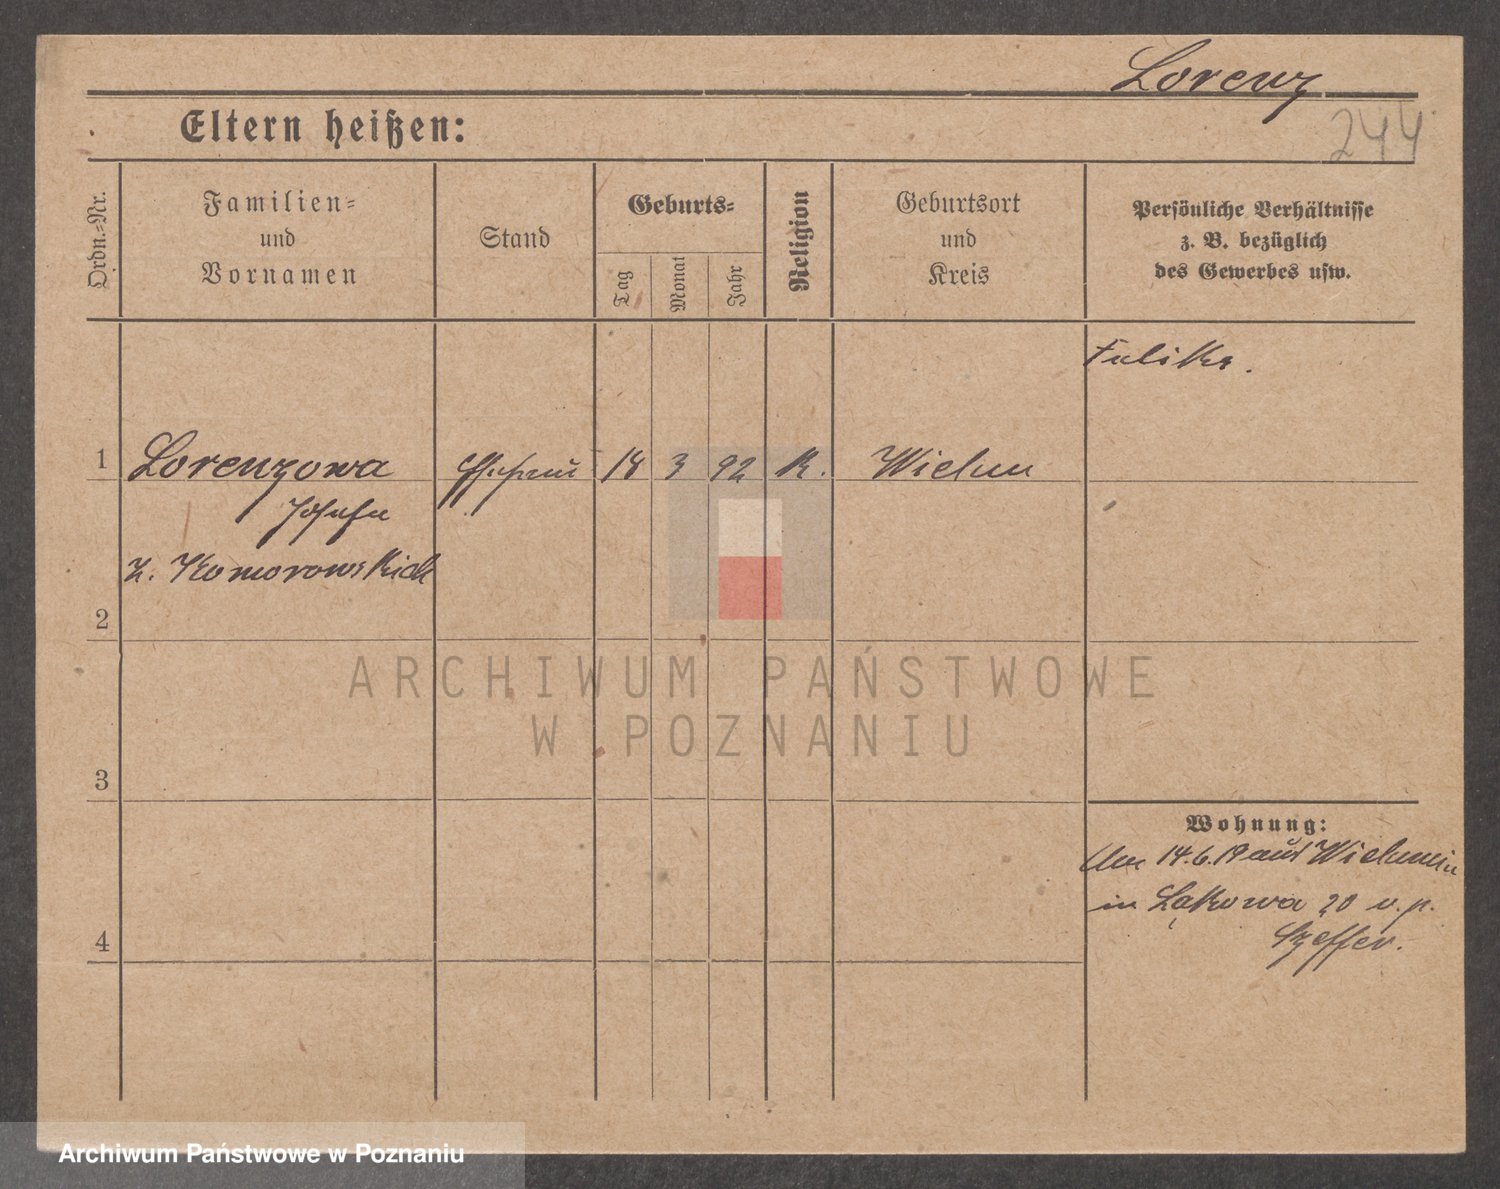 Lorenz
244
Eltern heißen:
Ordn.-Nr.
Familien-
und
Vornamen
Stand
Geburts-
Tag
Monat
Jahr
Religion
Geburtsort
und
Kreis
Persönliche Verhältnisse
z. B. bezüglich
des Gewerbes usw.
1
Lorenzowa
18 3 92 K.
Wielun
Josefa
z. Komorowskich
2
3
4
Wohnung:
14.6.19 aus
in Łąkowa 20 v. p.
Szeffer.
ARCHIWUM PAŃSTWOWE
W POZNANIU
Archiwum Państwowe w Poznaniu